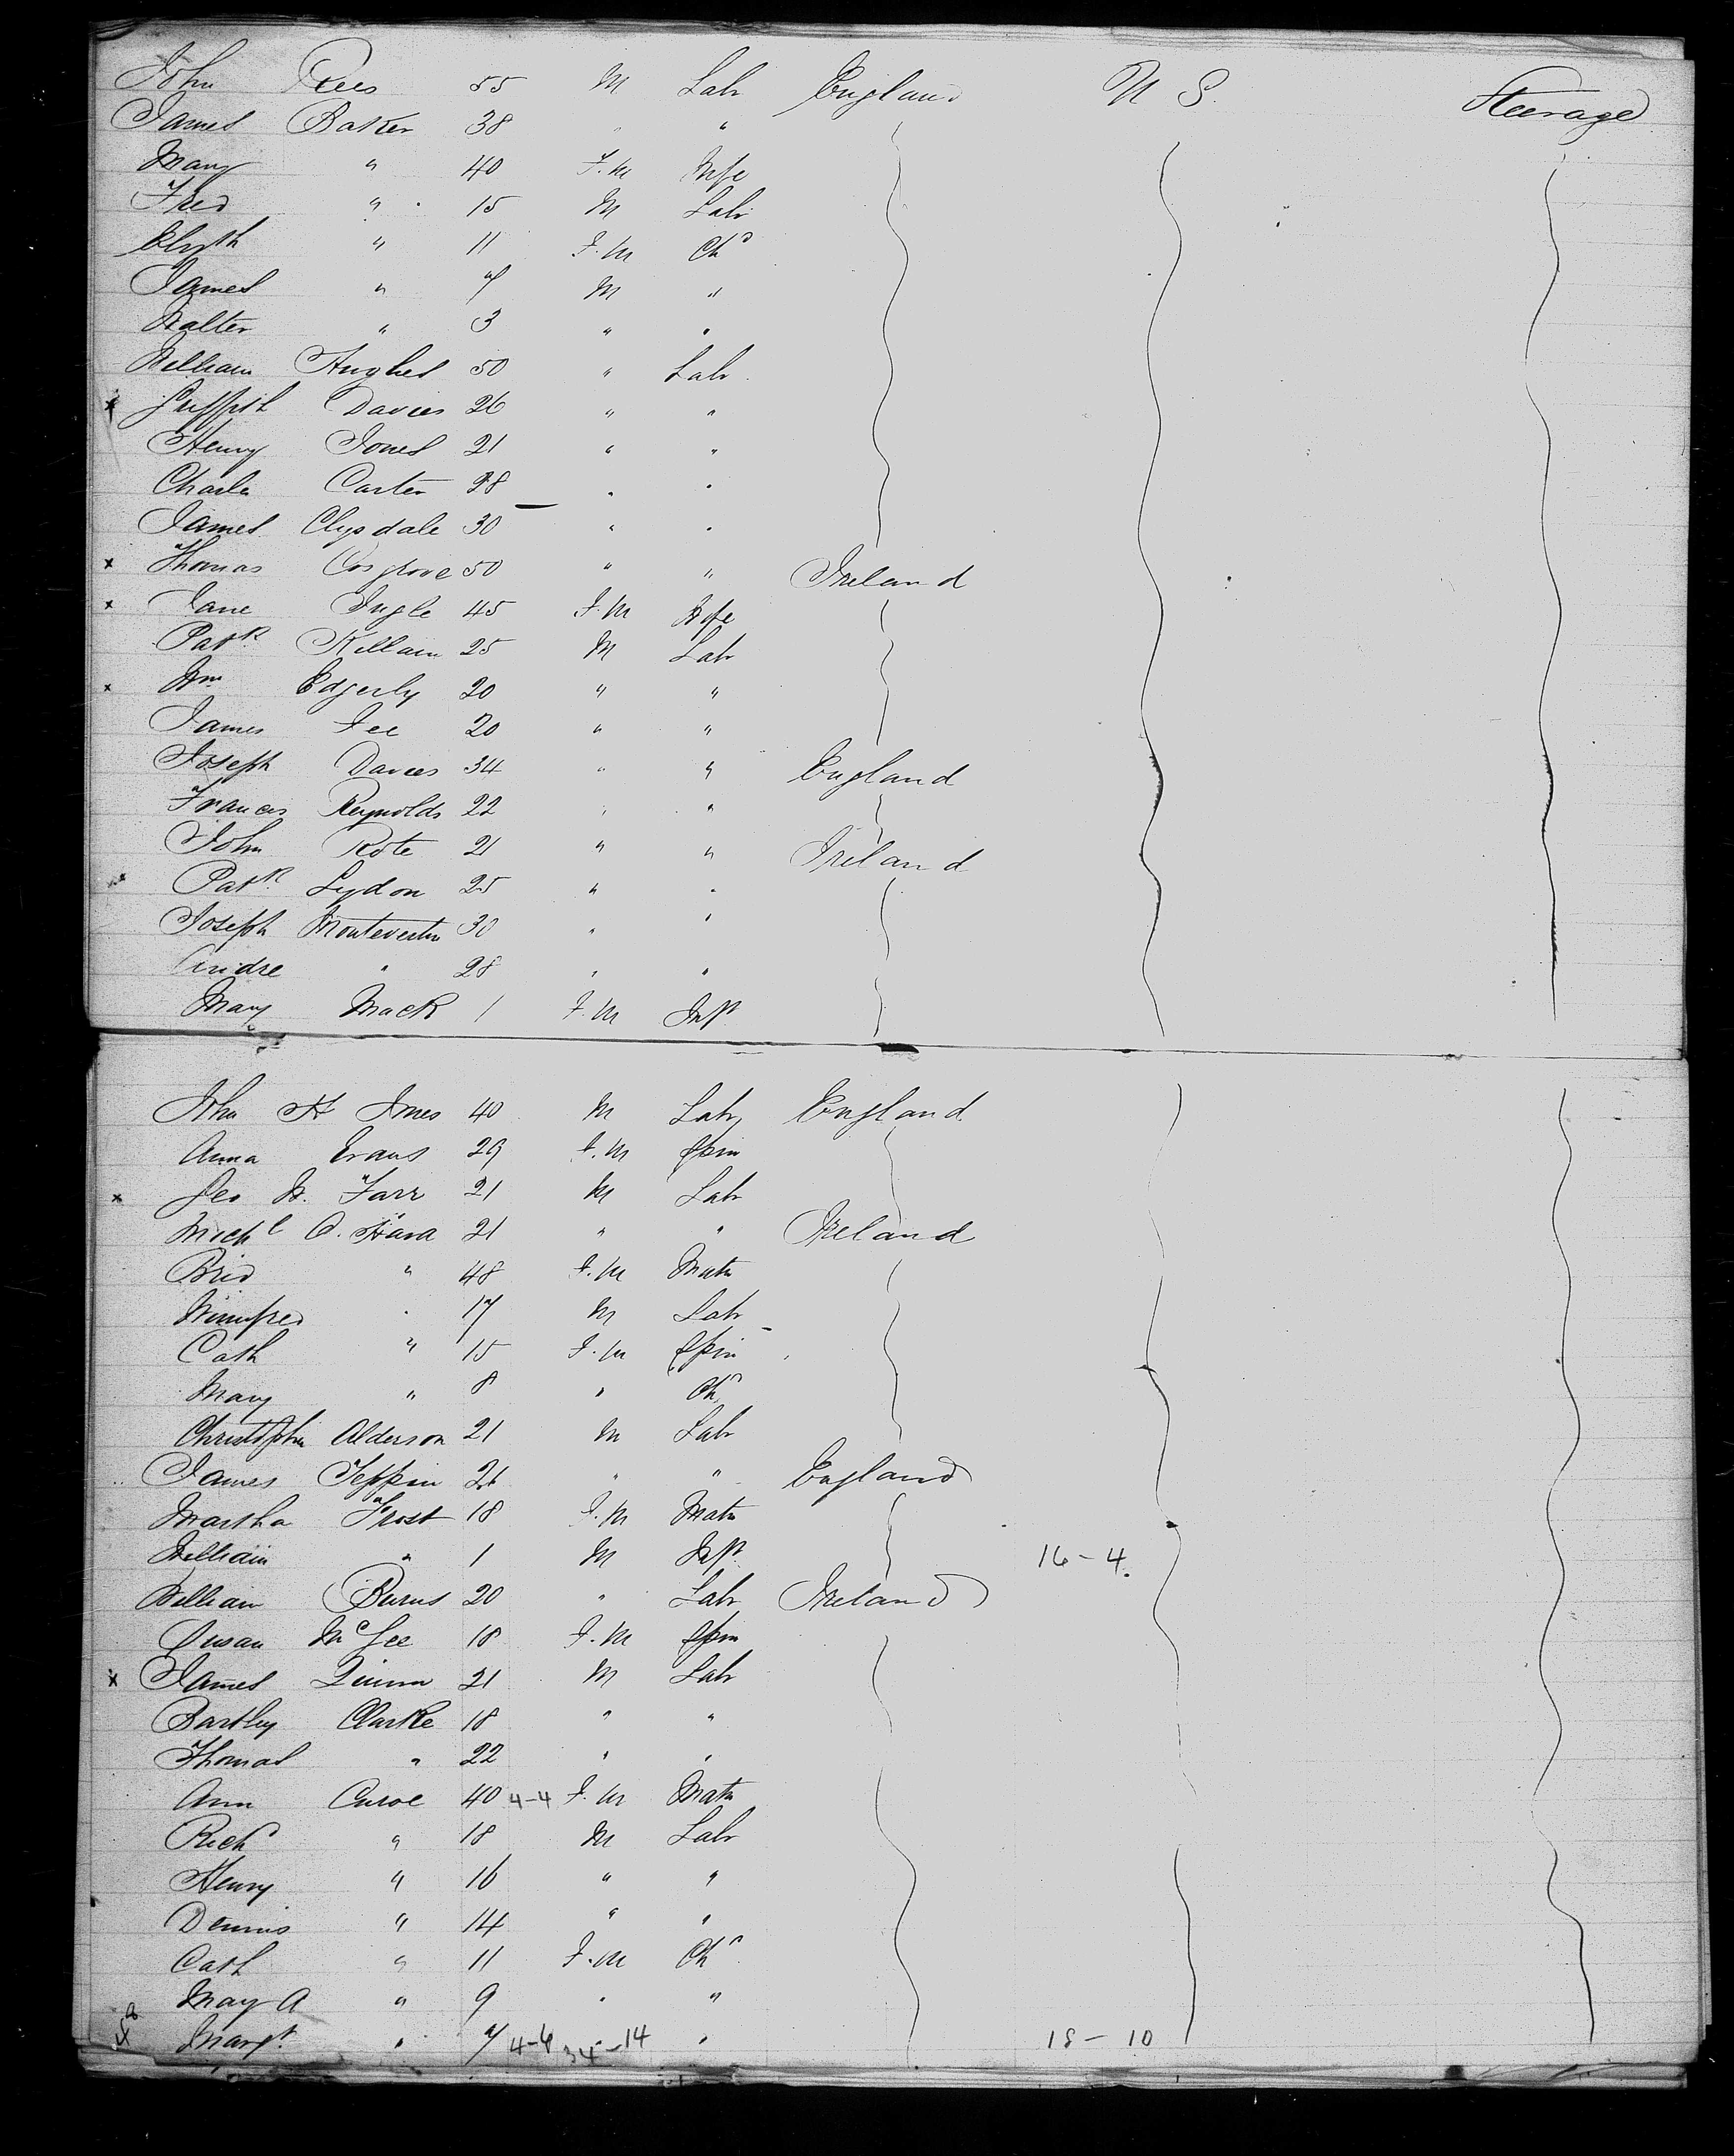 John Rees 55 M Labr England U S. Steerage
James Baker 38 " "
Mary " 40 F.M Wife
Fred " 15 M Labr
Elizth " 11 F.M Chd
James " 7 M "
Walter " 3 " "
William Hughes 50 " Labr
x Griffith Davies 26 " "
Henry Jones 21 " "
Charles Carter 28 " "
James Clysdale 30 " "
x Thomas Cosgrove 50 " " Ireland
x Jane Ingle 45 F.M Wife
Patk Killain 25 M Labr
x Wm Edgerly 20 " "
James Fee 20 " "
Joseph Davies 34 " " England
Francis Reynolds 22 " "
John Rote 21 " " Ireland
x Patk Lydon 25 " "
Joseph 30 " "
Andre " 28 " "
Mary Mack 1 F.M Inft
John H Imes 40 M Labr England
Anna Evans 29 F.M Spin
x Geo W. Farr 21 M Labr
Michl O.Hara 21 " " Ireland
Brid " 48 F.M Matn
Winifred " 17 M Labr
Cath " 15 F.M Spin
Mary " 8 " Chd
Christopher Alderson 21 M Labr
James Teppin 21 " " England
Martha Frost 18 F.M Matn
William " 1 M Inft 16-4.
William Burns 20 " Labr Ireland
Susan McGee 18 F.M Spin
x James Quinn 21 M Labr
Bartley Clarke 18 " "
Thomas " 22 " "
Ann Curoe 40 4-4 F.M Matn
Richd " 18 M Labr
Henry " 16 " "
Dennis " 14 " "
Cath " 11 F.M Chd
May A " 9 " "
Margt " 7 4-6 34-14 " 18-10